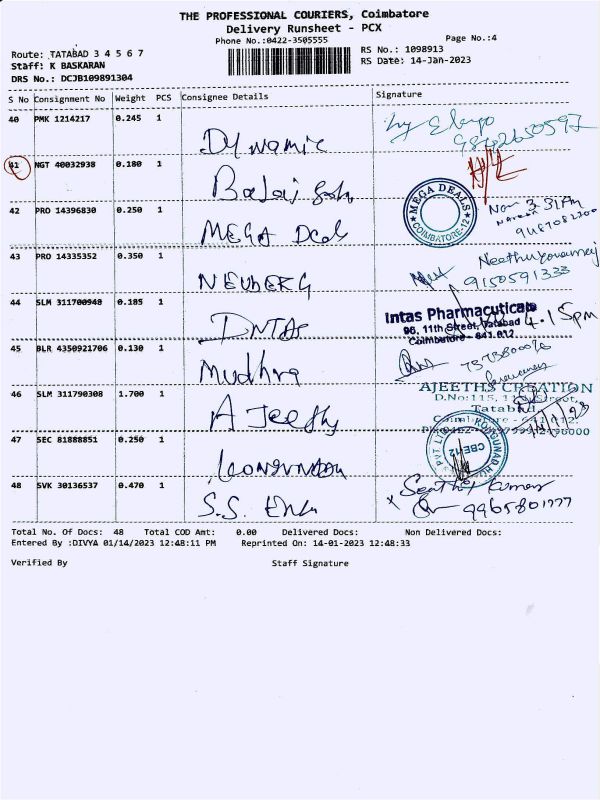 THE PROFESSIONAL COURIERS, Coimbatore
Delivery Runsheet - PCX
Phone No.:0422-3505555
Page No.:4
Route: TATABAD 3 4 5 6 7
RS No.: 1098913
Staff: K BASKARAN
RS Date: 14-Jan-2023
DRS No.: DCJB109891304
S No Consignment No Weight PCS Consignee Details Signature
40 PMK 1214217 0.245 1 Dynamic
41 NGT 40032938 0.180 1 Balaji
MEGA DEALS
COIMBATORE-12
42 PRO 14396830 0.250 1 MEGA Deals
43 PRO 14335352 0.350 1 NEUBERG
9150591333
44 SLM 311700948 0.185 1 INTAS
Intas Pharmacuticals
96, 11th Street, Tatabad
Coimbatore - 641 012
4.15pm
45 BLR 4350921706 0.130 1 Mudhra
46 SLM 311790308 1.700 1 AJeeths
AJEETHS CREATION
D.No:115, 11th Street,
Tatabad
Coimbatore - 641 012.
47 SEC 81888851 0.250 1
CBE-12
48 SVK 30136537 0.470 1 S.S.
9965801777
Total No. Of Docs: 48 Total COD Amt: 0.00 Delivered Docs: Non Delivered Docs:
Entered By :DIVYA 01/14/2023 12:48:11 PM Reprinted On: 14-01-2023 12:48:33
Verified By Staff Signature